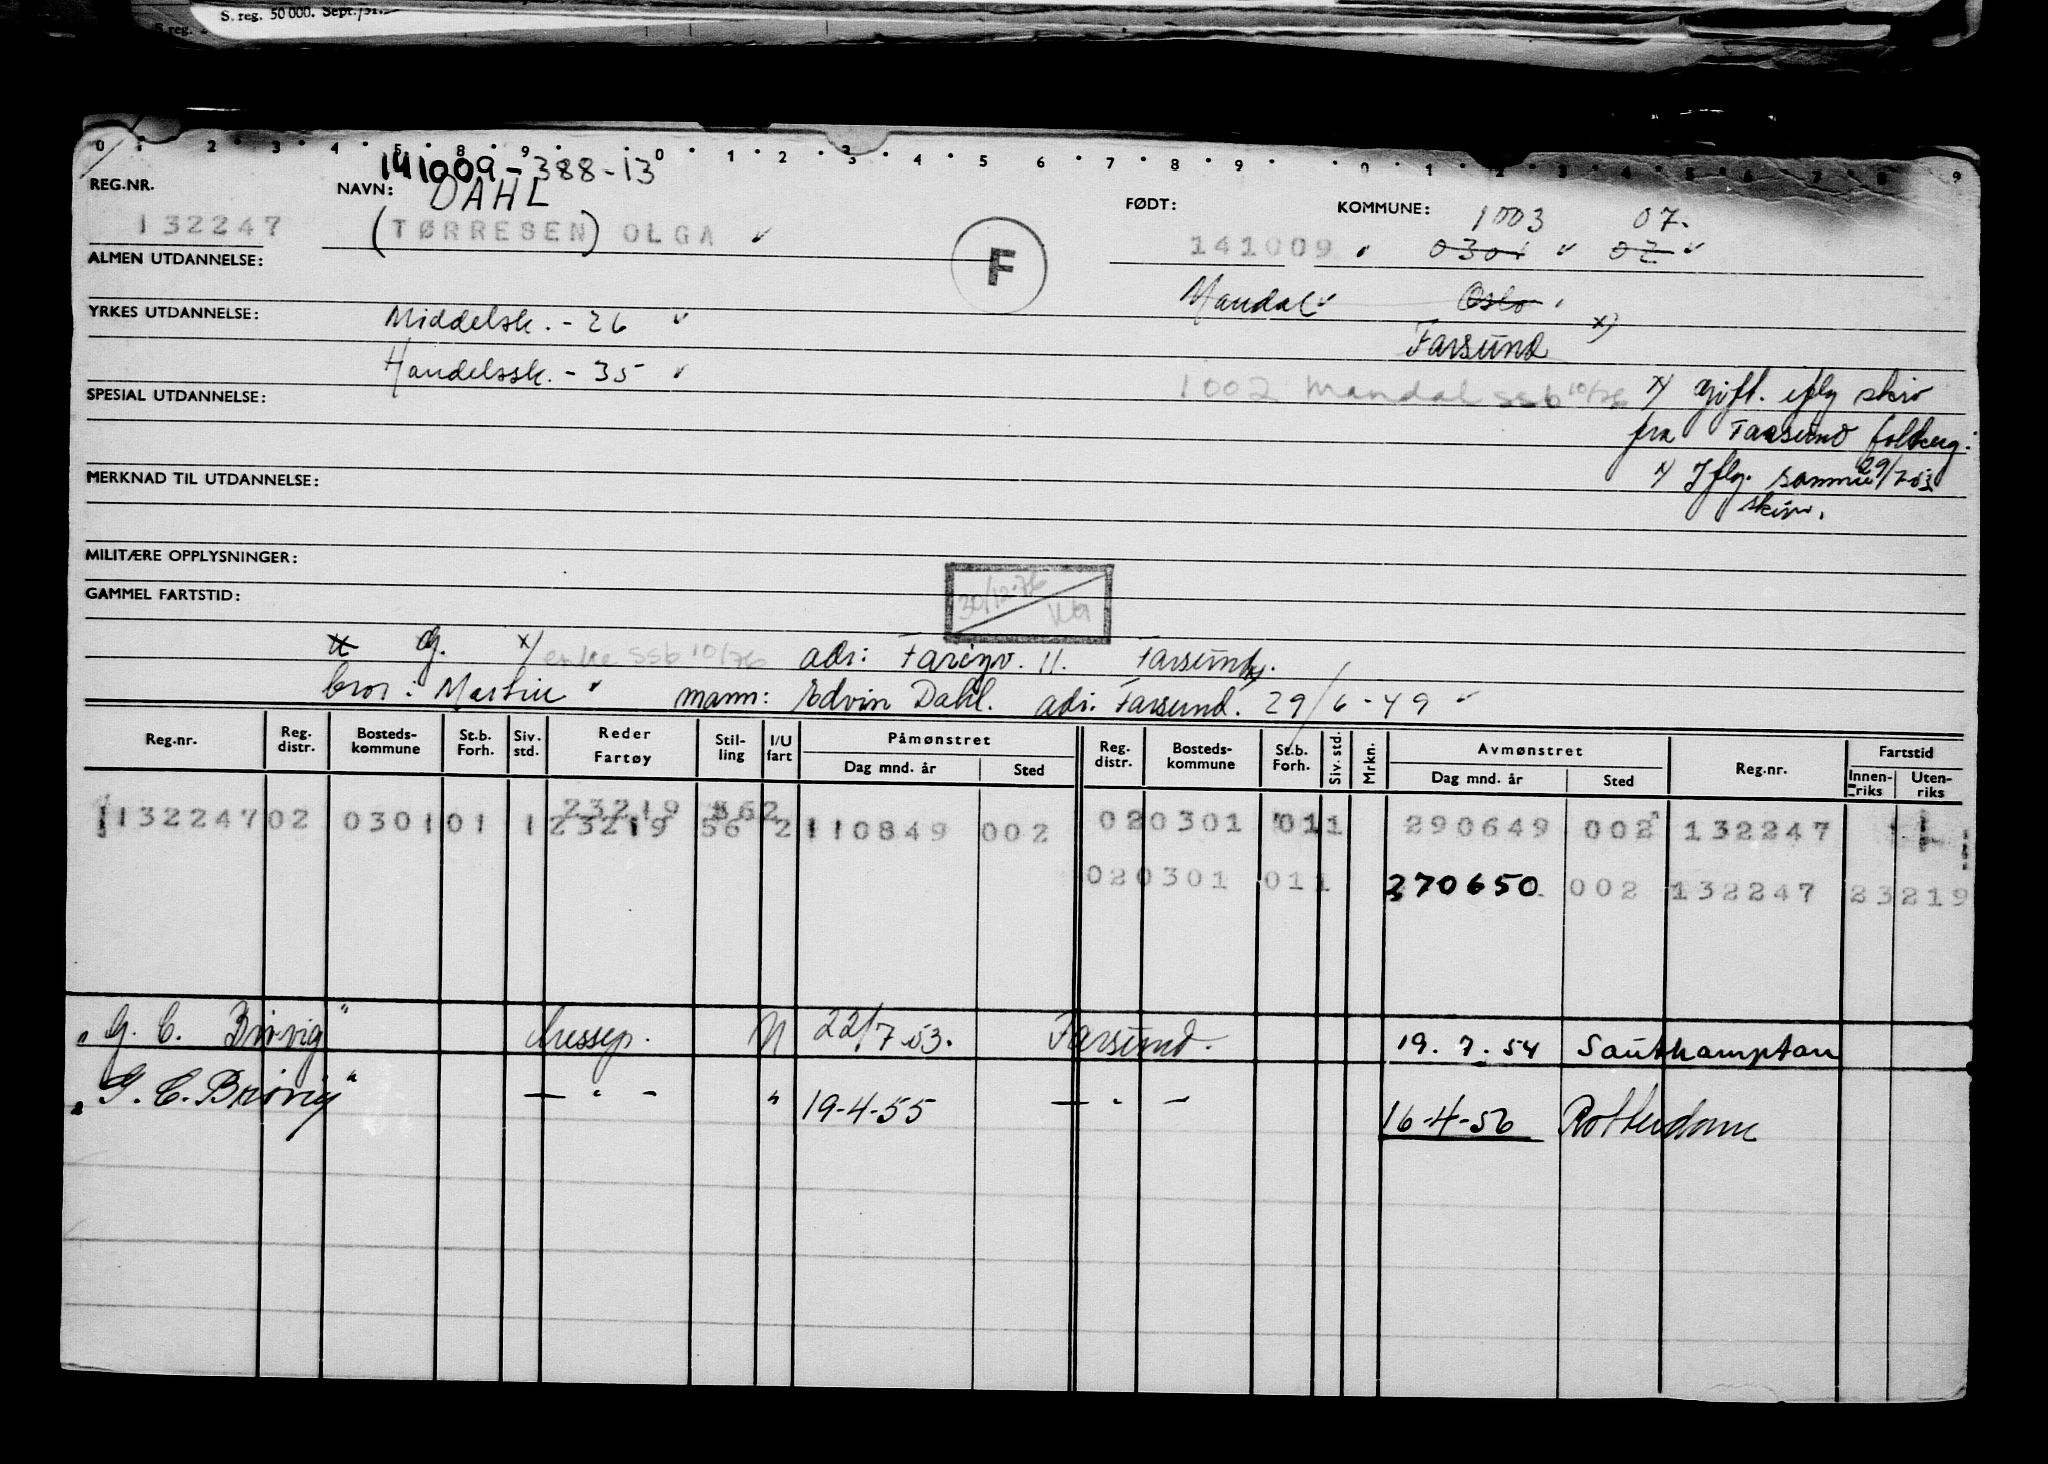 S. reg. 50 000. Sept./51.
S. reg.
0 1 2 3 4 5 8 9 0 1 2 3 4 5 6 7 8 9 0 1 2 3 4 5 6 7 8 9
141009-388-13
REG.NR. NAVN: DAHL FØDT: KOMMUNE: 1003 07.
132247 (TØRRESEN) OLGA F 141009 0301 02
ALMEN UTDANNELSE:
Mandal Oslo
YRKES UTDANNELSE: Middelsk. - 26 Farsund x)
Handelssk. - 35
1002 Mandal ssb 10/76 x) gift. iflg skriv
SPESIAL UTDANNELSE:
fra Farsund folkereg.
29/7-53
MERKNAD TIL UTDANNELSE: x) Iflg. samme
skriv.
MILITÆRE OPPLYSNINGER:
30/12-76
GAMMEL FARTSTID:
u G. x) enke ssb 10/76 adr: Farøyv. 11. Farsund x)
bror: Martin mann: Edvin Dahl. adr: Farsund. 29/6-49
Reg.nr. Reg. distr. Bosteds-kommune St.b. Forh. Siv. std. Reder Fartøy Stil-ling I/U fart Påmønstret Reg. distr. Bosteds-kommune St.b. Forh. Siv. std. Mrkn. Avmønstret Reg.nr. Fartstid
Dag mnd. år Sted Dag mnd. år Sted Innen-riks Uten-riks
23219 562
132247 02 0301 01 1 23219 56 2 110849 002 02 0301 011 290649 002 132247
02 0301 011 270650 002 132247 23219
"G. C. Brøvig" Messep. U 22/7.53. Farsund. 19.7.54 Southampton
"G. C. Brøvig" — " — " 19-4-55 — " — 16-4-56 Rotterdam